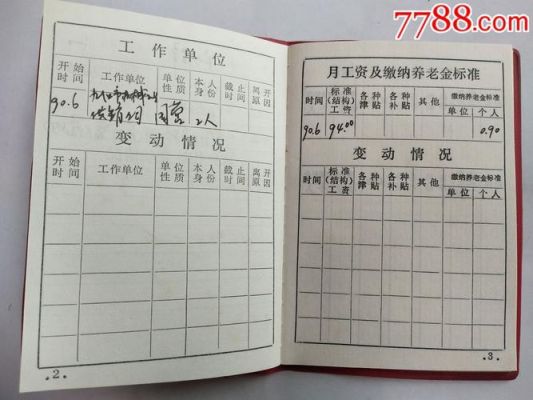 7788.com
工作单位
开始时间 工作单位 单位性质 本人身份 截止时间 离开原因
90.6 国营 工人
变动情况
开始时间 工作单位 单位性质 本人身份 截止时间 离开原因
.2.
月工资及缴纳养老金标准
时间 标准(结构)工资 各种津贴 各种补贴 其他 缴纳养老金标准
单位 个人
90.6 94.00 0.90
变动情况
时间 标准(结构)工资 各种津贴 各种补贴 其他 缴纳养老金标准
单位 个人
.3.